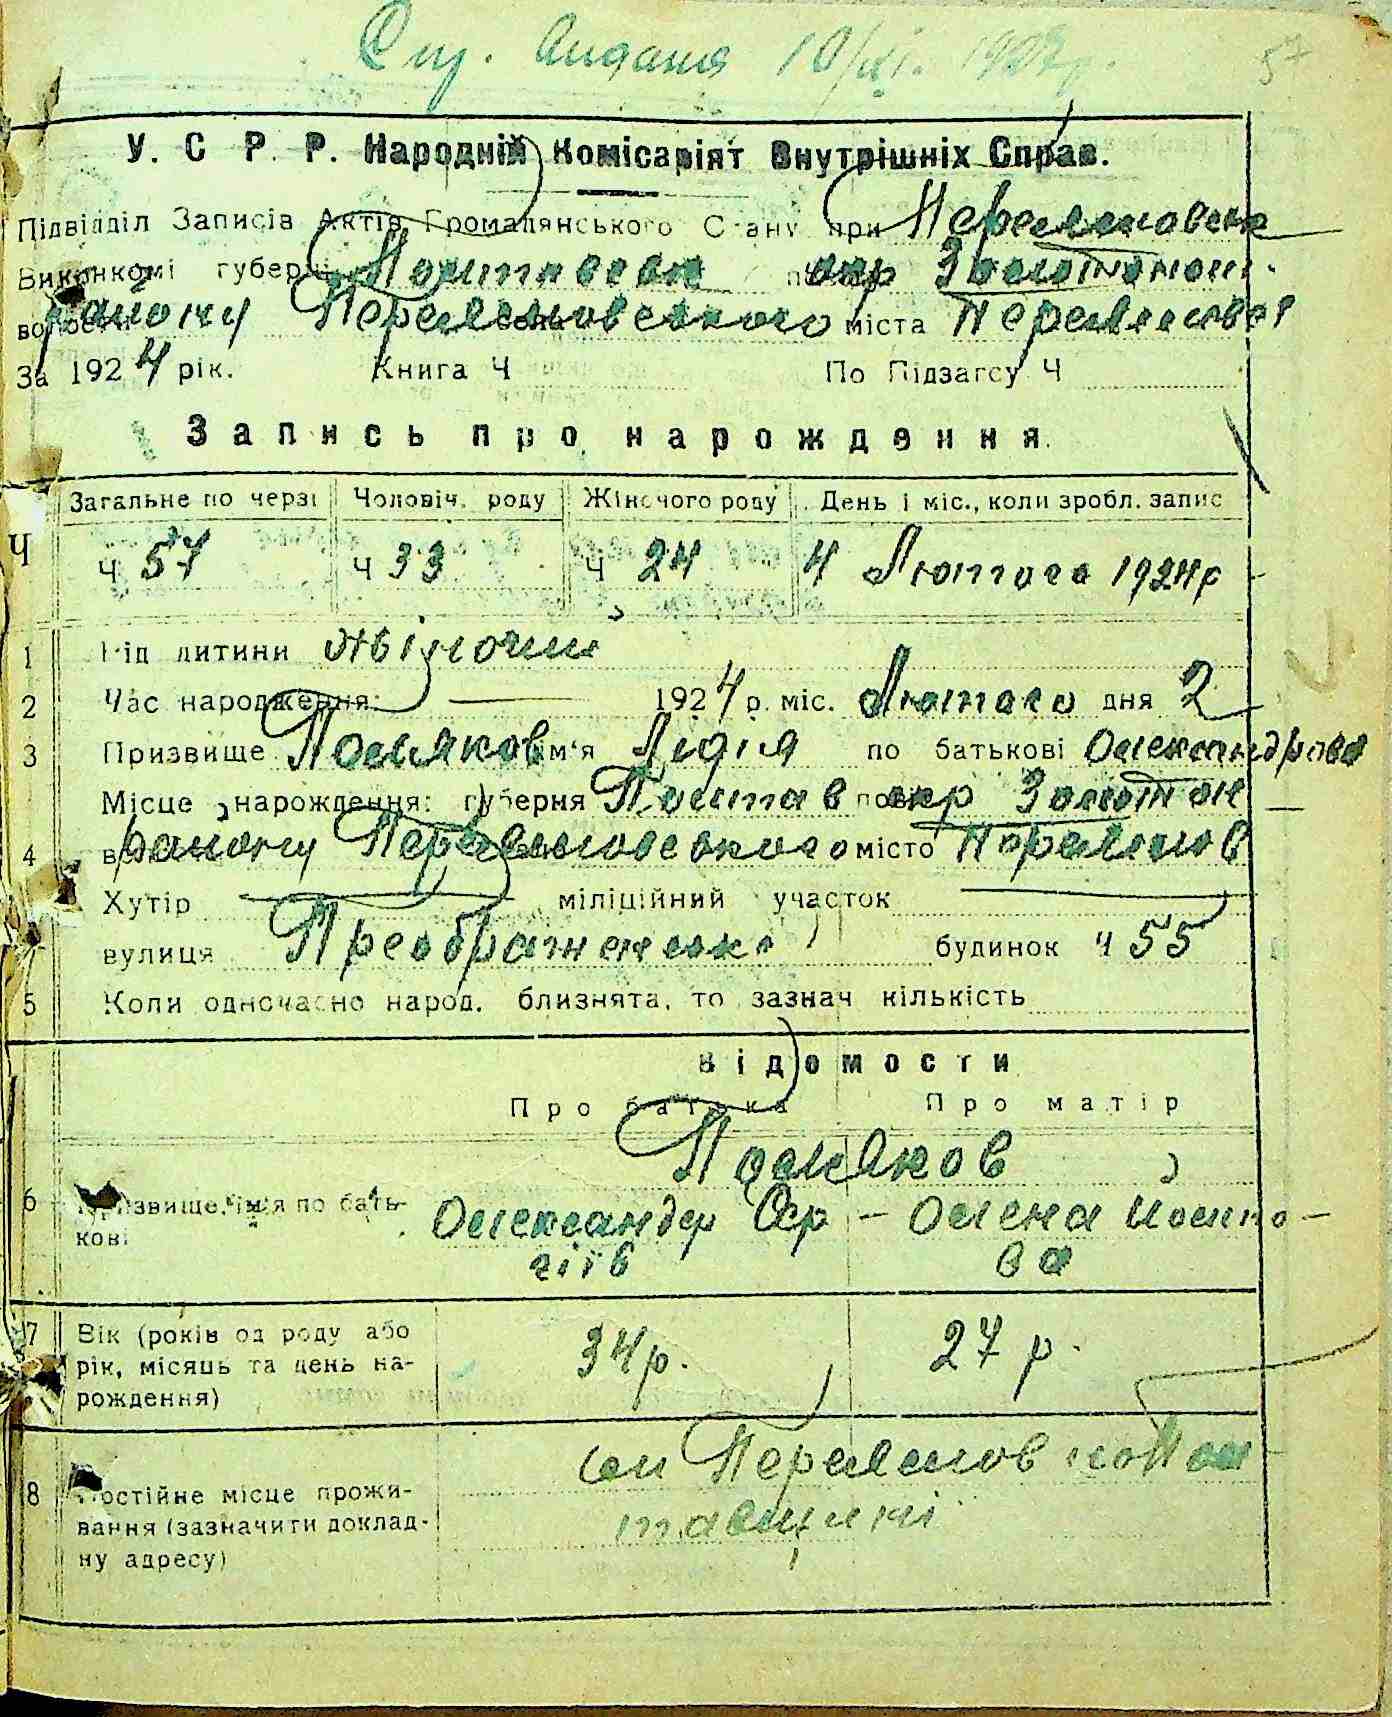 видана 10/XI. 57
У. С. Р. Р. Народній Комісаріят Внутрішніх Справ.
Підвідділ Записів Актів Громадянського Стану при Переяславськ
Виконкомі губерні Полтавськ окр Золотонош.
району Переяславського міста Переяслава
За 1924 рік. Книга Ч По Підзагсу Ч
Запись про нарождення.
Загальне по черзі Чоловіч. роду Жіночого роду День і міс., коли зробл. запис
Ч Ч 57 Ч 33 Ч 24 4 Лютого 1924 р
1 Рід дитини жіночий
2 Час народження: 1924 р. міс. Лютого дня 2
3 Призвище Поляков ім'я Лідія по батькові Олександрова
Місце нарождення: губерня Полтав окр Золотон
4 району Переяславського місто Переяслав
Хутір міліційний участок
вулиця Преображенська будинок ч 55
5 Коли одночасно народ. близнята, то зазнач кількість
Відомости
Про батька Про матір
Поляков
6 Призвище, ім'я по бать- Олександр Сер – Олена Йосипо –
кові гіїв ва
7 Вік (років од роду або 34 р. 27 р.
рік, місяць та день на-
рождення)
Переяслав на Пол
8 Постійне місце прожи- тавщині
вання (зазначити доклад-
ну адресу)